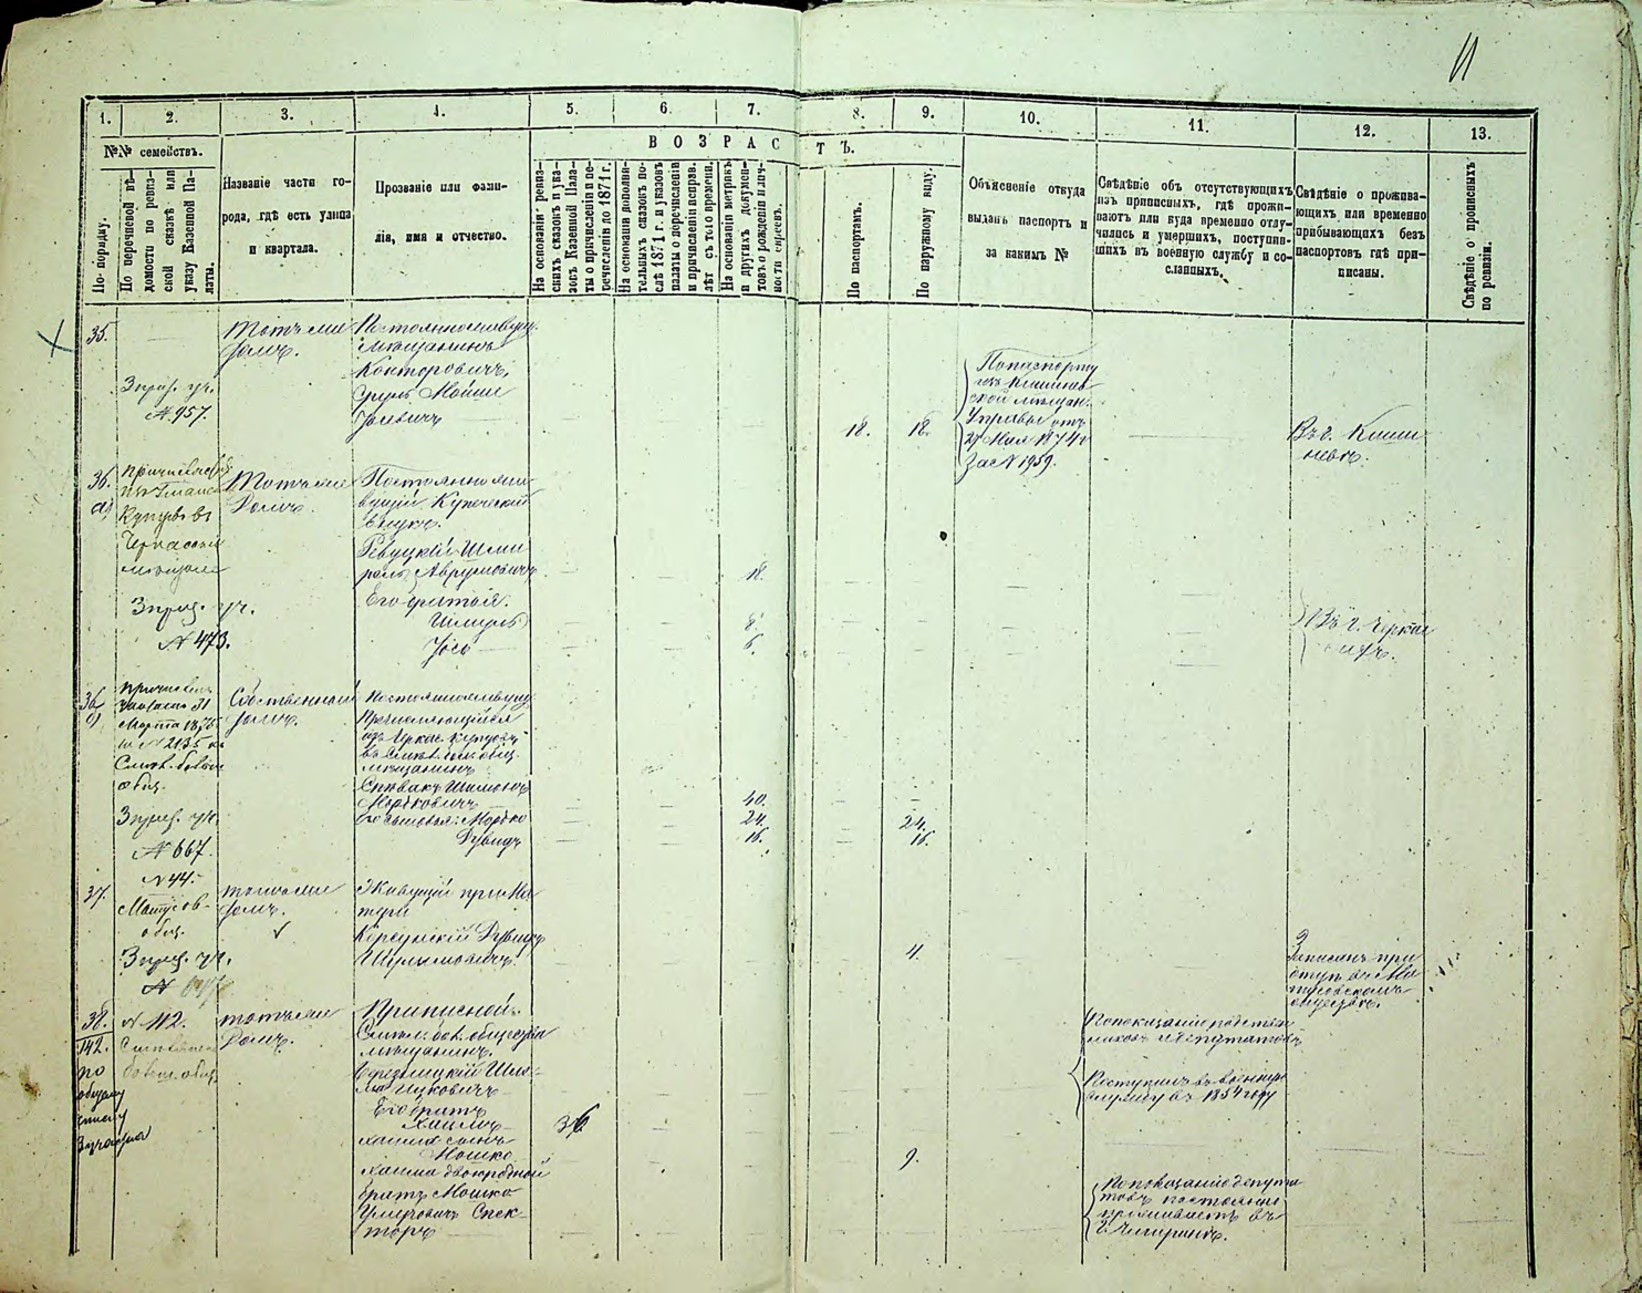 11
1. 2. 3. 4. 5. 6. 7. 8. 9. 10. 11. 12. 13.
№№ семействъ.
ВОЗРАСТЪ.
По порядку.
По перечневой вѣ-
домости по ревиз-
ской сказкѣ или
указу Казенной Па-
латы.
Названіе части го-
рода, гдѣ есть улица
и квартала.
Прозваніе или фами-
лія, имя и отчество.
На основаніи ревиз-
скихъ сказокъ и ука-
зовъ Казенной Пала-
ты о причисленіи и пе-
речисленіи до 1871 г.
На основаніи дополни-
тельныхъ сказокъ по-
слѣ 1871 г. и указовъ
палаты о перечисленіи
и причисленіи исправ.
лѣт съ того времени.
На основаніи метрикъ
и другихъ докумен-
товъ о рожденіи и лич-
ности евреевъ.
По паспортамъ.
По наружному виду.
Объясненіе откуда
выданъ паспортъ и
за какимъ №
Свѣдѣніе объ отсутствующихъ
изъ приписныхъ, гдѣ прожи-
ваютъ или куда временно отлу-
чились и умершихъ, поступив-
шихъ въ военную службу и со-
сланныхъ.
Свѣдѣніе о прожива-
ющихъ или временно
прибывающихъ безъ
паспортовъ гдѣ при-
писаны.
Свѣдѣніе о прописныхъ
по ревизіи.
35.
3 приз. уч.
№ 957.
Тотъ же
домъ.
Постояннживущ.
мѣщанинъ
Конторовичъ,
Сруль Мойше
18. 18.
По паспорту
изъ Кишинев-
ской мѣщан.
Управы отъ
27 Мая 1874 г.
За № 1959.
Въ г. Киши-
невѣ.
36.
а)
Купцовъ въ
Черкасскіе
мѣщане
3 приз. уч.
№ 473.
Тотъ же
Домъ.
Постоянно жи-
вущій Купеческій
внукъ.
Ревуцкій Шми-
Аврумовичъ
18.
Его братья:
Шмуль
8.
Іось
6.
Въ г. Черкас-
сахъ.
36
б)
31
Марта 1875
№ 2135
общ.
3 приз. уч.
№ 667.
Собственный
домъ.
Постояннживущ.
Причисляющійся
изъ Черкас. купцовъ
мѣщанинъ
Спивакъ Шимонъ
Мордковичъ
40.
Его сыновья: Мордко
24. 24.
Дувидъ
16. 16.
37.
№ 44.
Матусов.
общ.
3 приз. уч.
№
тотъ же
домъ.
Живущій при Ма-
тери
Корсунскій Дувидъ
Шулимовичъ.
4.
Записанъ при
Ма-
тусовскомъ
обществѣ.
38.
142.
по
общему
списку
3 участка
№ 112.
тотъ же
Домъ.
Приписной.
общества
мѣщанинъ.
Березницкій
Ицковичъ
Его братъ
Хаимъ
36
Хаима сынъ
Мошко
9.
Хаима двоюродный
братъ Мошко
Спек-
торъ
По показанію родствен-
никовъ и депутатовъ
Поступилъ въ военную
службу въ 1854 году
По показанію депута-
товъ постоянно
проживаетъ въ
г. Чигиринѣ.